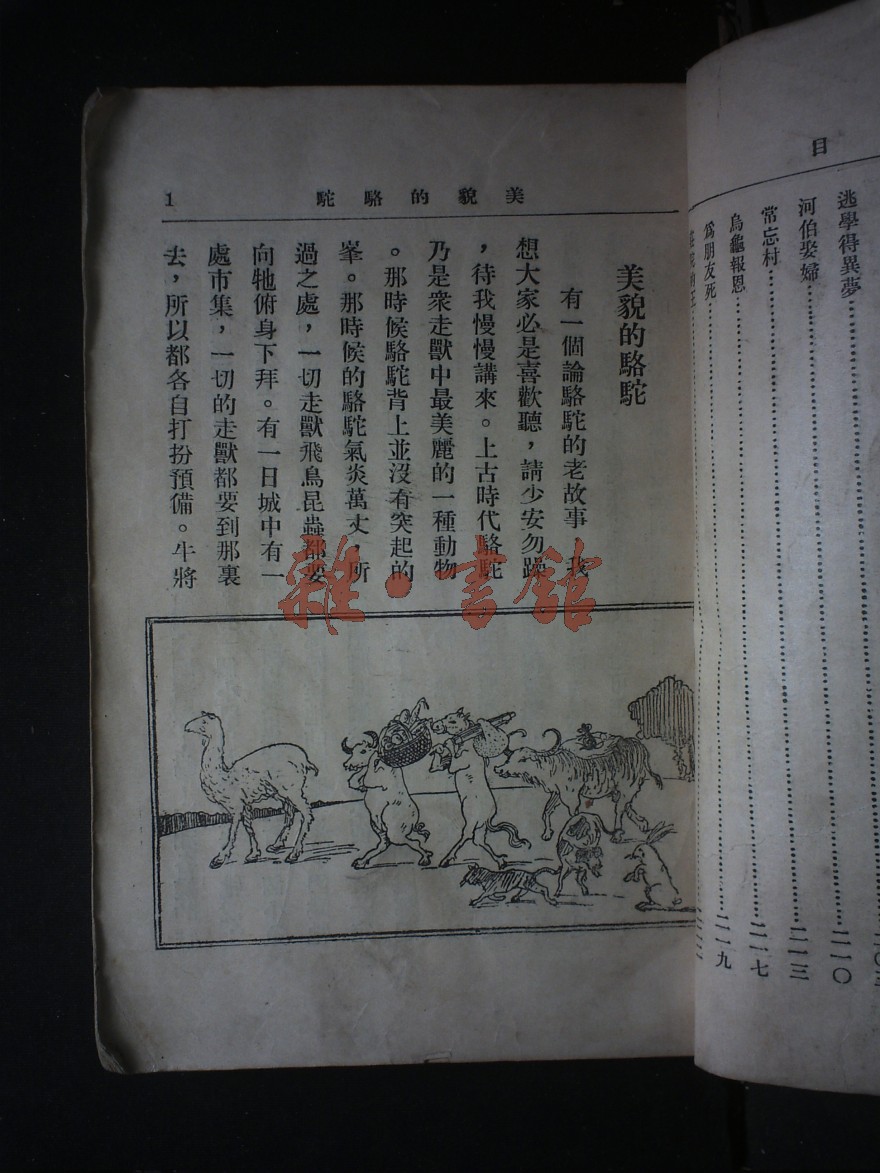 目
逃學得異夢……二一〇
河伯娶婦……二一三
常忘村……二一七
烏龜報恩……二一九
爲朋友死
美貌的駱駝
1
美貌的駱駝
有一個論駱駝的老故事，我
想大家必是喜歡聽，請少安勿躁
，待我慢慢講來。上古時代駱駝
乃是衆走獸中最美麗的一種動物
。那時候駱駝背上並沒有突起的
峯。那時候的駱駝氣炎萬丈，所
過之處，一切走獸飛鳥昆蟲都要
向牠俯身下拜。有一日城中有一
處市集，一切的走獸都要到那裏
去，所以都各自打扮預備。牛將
雜·書館